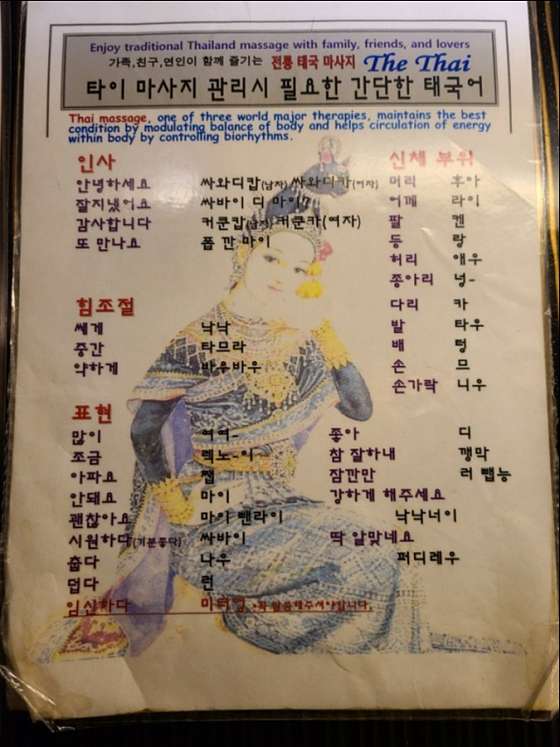 Enjoy traditional Thailand massage with family, friends, and lovers
가족,친구,연인이 함께 즐기는 전통 태국 마사지 The Thai
타이 마사지 관리시 필요한 간단한 태국어
Thai massage, one of three world major therapies, maintains the best
condition by modulating balance of body and helps circulation of energy
within body by controlling biorhythms.
인사
안녕하세요 싸와디캅(남자) 싸와디카(여자)
잘지냈어요 싸바이 디 마이?
감사합니다 커쿤캅(남자) 커쿤카(여자)
또 만나요 폽 깐 마이
힘조절
쎄게 낙낙
중간 타므라
약하게 바우바우
신체 부위
머리 후아
어깨 라이
팔 캔
등 랑
허리 애우
종아리 넝-
다리 카
발 타우
배 텅
손 므
손가락 니우
표현
많이 여여-
조금 렉노-이-
아파요 쨉
안돼요 마이
괜찮아요 마이 뺀라이
시원하다(기분좋다) 싸바이
춥다 나우
덥다 런
임신하다
좋아 디
참 잘하내 깽막
잠깐만 러 뺍능
강하게 해주세요
낙낙너이
딱 알맞네요
퍼디레우